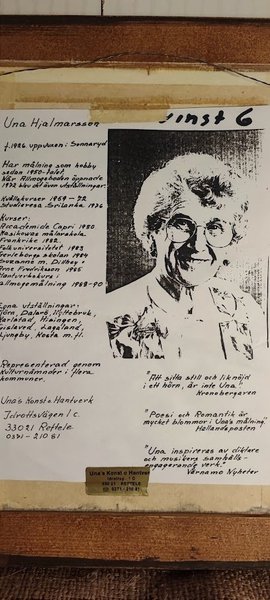 Una Hjalmarsson
vinst 6
f. 1926. uppvuxen i Sannaryd
Har målning som hobby
sedan 1950-talet.
När Allmogeboden öppnade
1972 blev det även utställningar.
Kvällskurser 1969-72
Studieresa Sri Lanka 1976
Kurser:
Accademia Capri 1980
målarskola,
Frankrike 1982.
Folkuniversitetet 1983
Gerlesborgs skolan 1984
Susanne m.
Arne Fredriksson 1985
Hantverkskurs i
allmogemålning 1989-90
Egna utställningar:
Dalarö, Hyltebruk,
Karlstad, Hisingen,
Gislaved, Lagaland,
Ljungby, Kosta m. fl.
Representerad genom
Kulturnämnder i flera
kommuner.
Una's Konst o Hantverk
Idrottsvägen 1 c.
33021 Reftele
0371-210 61
"Att sitta still och lik nöjd
i ett hörn, är inte Una".
Kronobergaren
"Poesi och Romantik är
mycket blommor i Una's målning"
Hallandsposten
"Una inspireras av diktare
och musikers samhälls-
engagerande verk."
Värnamo Nyheter
Una's Konst o Hantverk
330 21 REFTELE